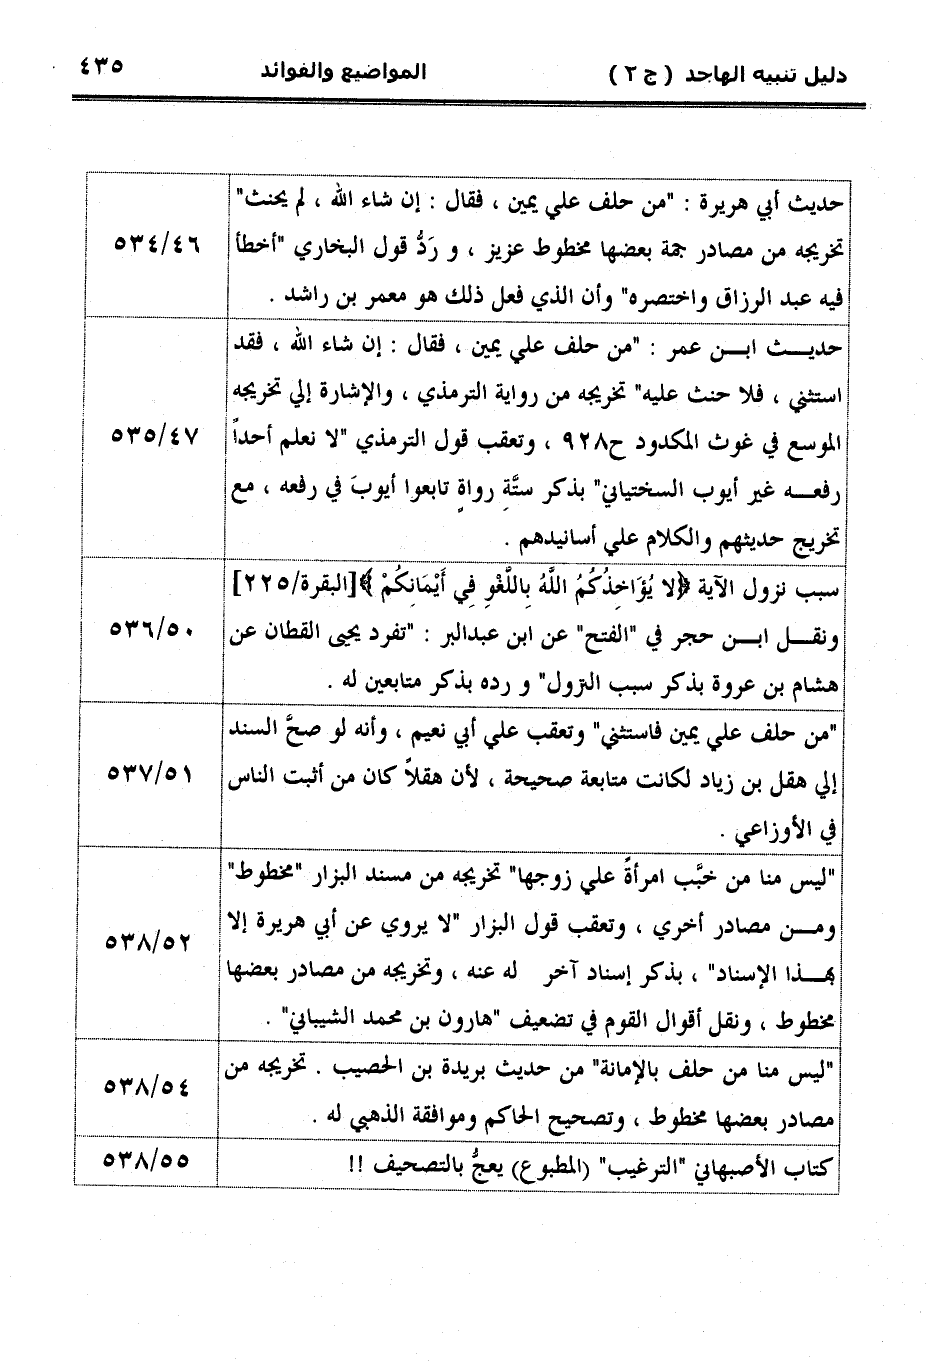 دليل تنبيه الهاجد ( ج ٢ ) المواضيع والفوائد ٤٣٥
حديث أبي هريرة : "من حلف علي يمين ، فقال : إن شاء الله ، لم يحنث"
تخريجه من مصادر جمة بعضها مخطوط عزيز ، و رَدُّ قول البخاري "أخطأ
٥٣٤/٤٦
فيه عبد الرزاق واختصره" وأن الذي فعل ذلك هو معمر بن راشد .
حديـــث ابـــن عمر : "من حلف علي يمين ، فقال : إن شاء الله ، فقد
استثني ، فلا حنث عليه" تخريجه من رواية الترمذي ، والإشارة إلي تخريجه
الموسع في غوث المكدود ح٩٢٨ ، وتعقب قول الترمذي "لا نعلم أحداً
٥٣٥/٤٧
رفعـــه غير أيوب السختياني" بذكر ستَّةِ رواةٍ تابعوا أيوبَ في رفعه ، مع
تخريج حديثهم والكلام علي أسانيدهم .
سبب نزول الآية ﴿لا يُؤَاخِذُكُمُ اللَّهُ بِاللَّغْوِ فِي أَيْمَانِكُمْ ﴾[البقرة/٢٢٥]
ونقـــل ابـــن حجر في "الفتح" عن ابن عبدالبر : "تفرد يحيى القطان عن
٥٣٦/٥٠
هشام بن عروة بذكر سبب النزول" و رده بذكر متابعين له .
"من حلف علي يمين فاستثني" وتعقب علي أبي نعيم ، وأنه لو صحَّ السند
إلي هقل بن زياد لكانت متابعة صحيحة ، لأن هقلاً كان من أثبت الناس
٥٣٧/٥١
في الأوزاعي .
"ليس منا من خبَّب امرأةً علي زوجها" تخريجه من مسند البزار "مخطوط"
ومـــن مصادر أخري ، وتعقب قول البزار "لا يروي عن أبي هريرة إلا
٥٣٨/٥٢
بهـــذا الإسناد" ، بذكر إسناد آخر له عنه ، وتخريجه من مصادر بعضها
مخطوط ، ونقل أقوال القوم في تضعيف "هارون بن محمد الشيباني" .
"ليس منا من حلف بالإمانة" من حديث بريدة بن الحصيب . تخريجه من
٥٣٨/٥٤
مصادر بعضها مخطوط ، وتصحيح الحاكم وموافقة الذهبي له .
كتاب الأصبهاني "الترغيب" (المطبوع) يعجُّ بالتصحيف !!
٥٣٨/٥٥